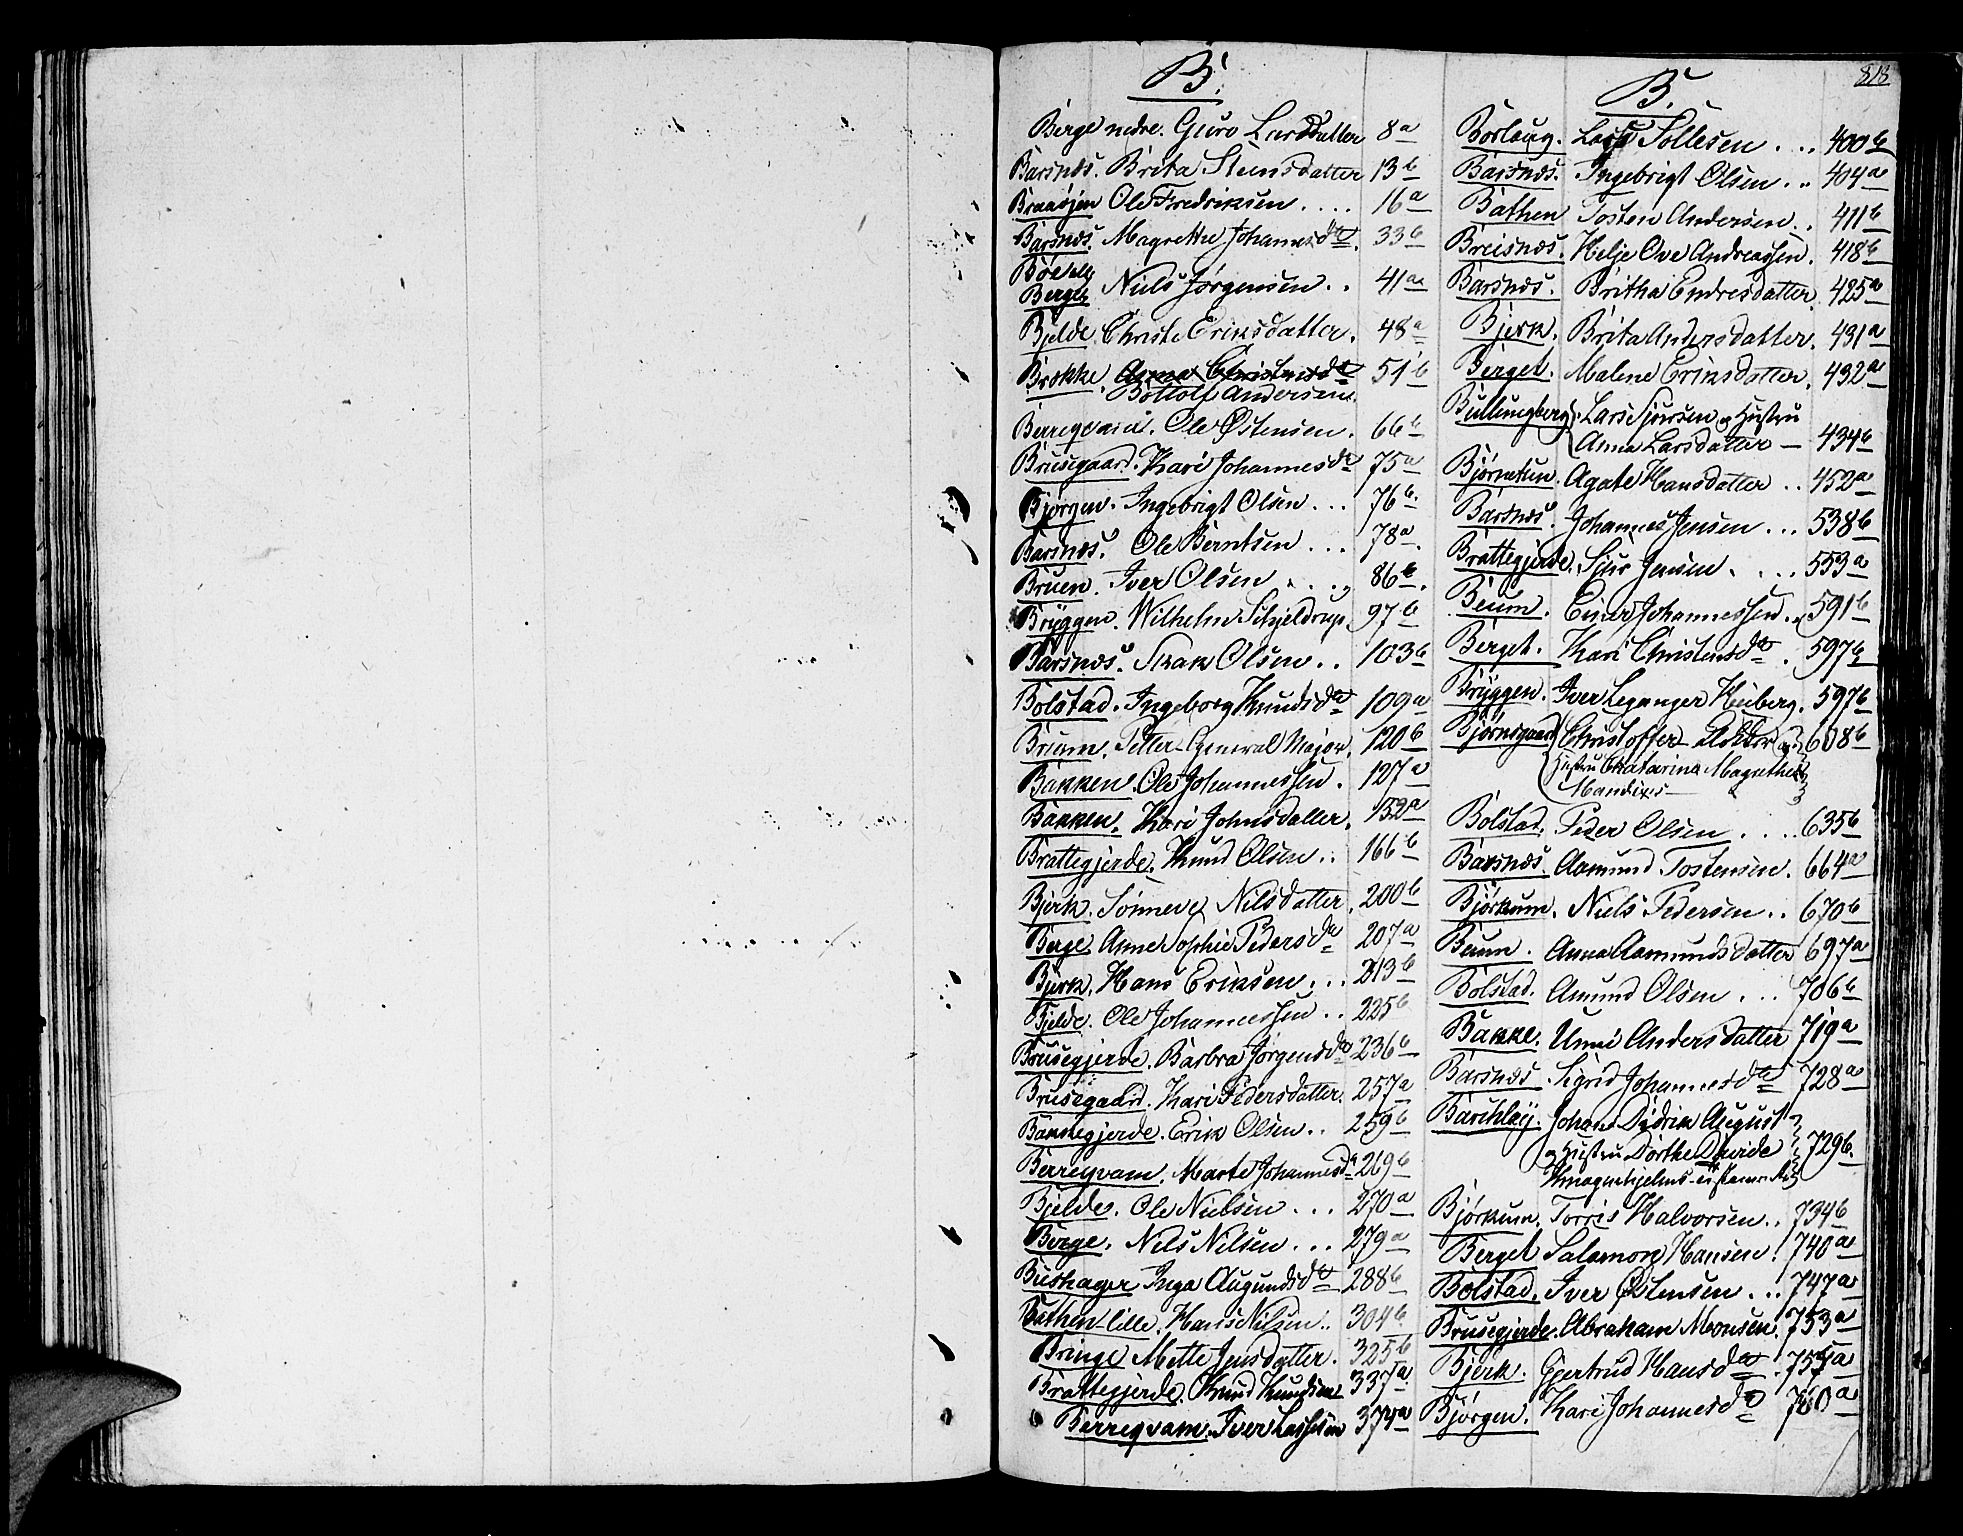 818
B.
Berge nedre. Guro Larsdatter 8a
Barsnæs. Brita Steensdatter 13b
Ole Fredriksen .... 16a
Barsnæs. Magrethe Johannesdtr. 33b
Bøe
Berge Niels Jørgensen .. 41a
Bjelde. Christi Eriksdatter. 48a
Brække. Anna Christensdtr 51b
Bottolf Andersen.
Berreqvam. Ole Østensen. 66b
Brusegaard. Kari Johannesdr 75a
Bjørgen. Ingebrigt Olsen ... 76b.
Barsnæs. Ole Berntsen ... 78a.
Bruen. Iver Olsen .... 86b.
Bryggen. Wilhelm Schjeldrup. 97b
Barsnæs. Isak Olsen .. 103b
Bolstad. Ingeborg Knudsdr 109a
Brium. Petter General Major. 120b
Bakken. Ole Johannessen. 127a
Bakken. Kari Johnsdatter. 152a
Brattegjerde. Knud Olsen .. 166b
Bjerk. Sønneve Nilsdatter. 200b
Berge. Anne Sophie Pedersdr 207a
Bjerk. Hans Eriksen ... 213b
Bjelde. Ole Johannessen .. 225b
Brusegjerde. Barbra Jørgensdr 236b
Brusegaard. Kari Pedersdatter. 257a
Bakkegjerde. Erik Olsen .. 259b
Berreqvam. Marte Johannesdr 269b
Bjelde. Ole Nielsen ... 270a
Berge. Nils Nilsen ... 279a
Bushager Inga Augundsdr 288b
Bathen lille. Hans Nilsen .. 304b
Bringe Mette Jensdatter. 325b
Brattegjerde. Knud Knudsen 337a
Berreqvam. Iver Lassesen 374a
B.
Borlaug. Lars Sollesen ... 400b
Barsnæs. Ingebrigt Olsen .. 404a
Bathen Tosten Andersen .. 411b
Breisnæs. Helje Ove Andreassen. 418b
Barsnæs. Britha Endresdatter. 425a
Bjerk. Brita Andersdatter. 431a
Berget. Malene Eriksdatter. 432a
Bullungberg. Lars Sjursen og Hustru
Anna Larsdatter — 434b
Bjørnetun. Agate Hansdatter .. 452a
Barsnæs. Johannes Jensen ... 538b
Brattegjerde. Sjur Jensen .... 553a
Beum. Einar Johannessen .. 591b
Berget. Kari Christensdr. 597b
Bryggen. Iver Leganger Heiberg. 597b
Bjørnsgaard Christoffer Doktor og 608b
Hustru Chatarina Magrethe
Mandixes
Bolstad. Peder Olsen .... 635b
Barsnæs. Aamund Tostensen. 664a
Bjørkum. Niels Pedersen .. 670b
Beum. Anna Aamundsdatter 697a
Bolstad. Amund Olsen ... 706b
Bakke. Unni Andersdatter 719a
Barsnæs. Sigrid Johannesdtr 728a
Johan Didrik August
og Hustru Dorthe Davide 729b.
Bjørkum. Torris Halvorsen .. 734b
Berget Salamon Hansen. 740a
Bolstad. Iver Østensen ... 747a
Brusegjerde. Abraham Monsen. 753a
Bjerk. Gjertrud Hansdr .. 754a
Bjørgen. Kari Johannesdr 760a